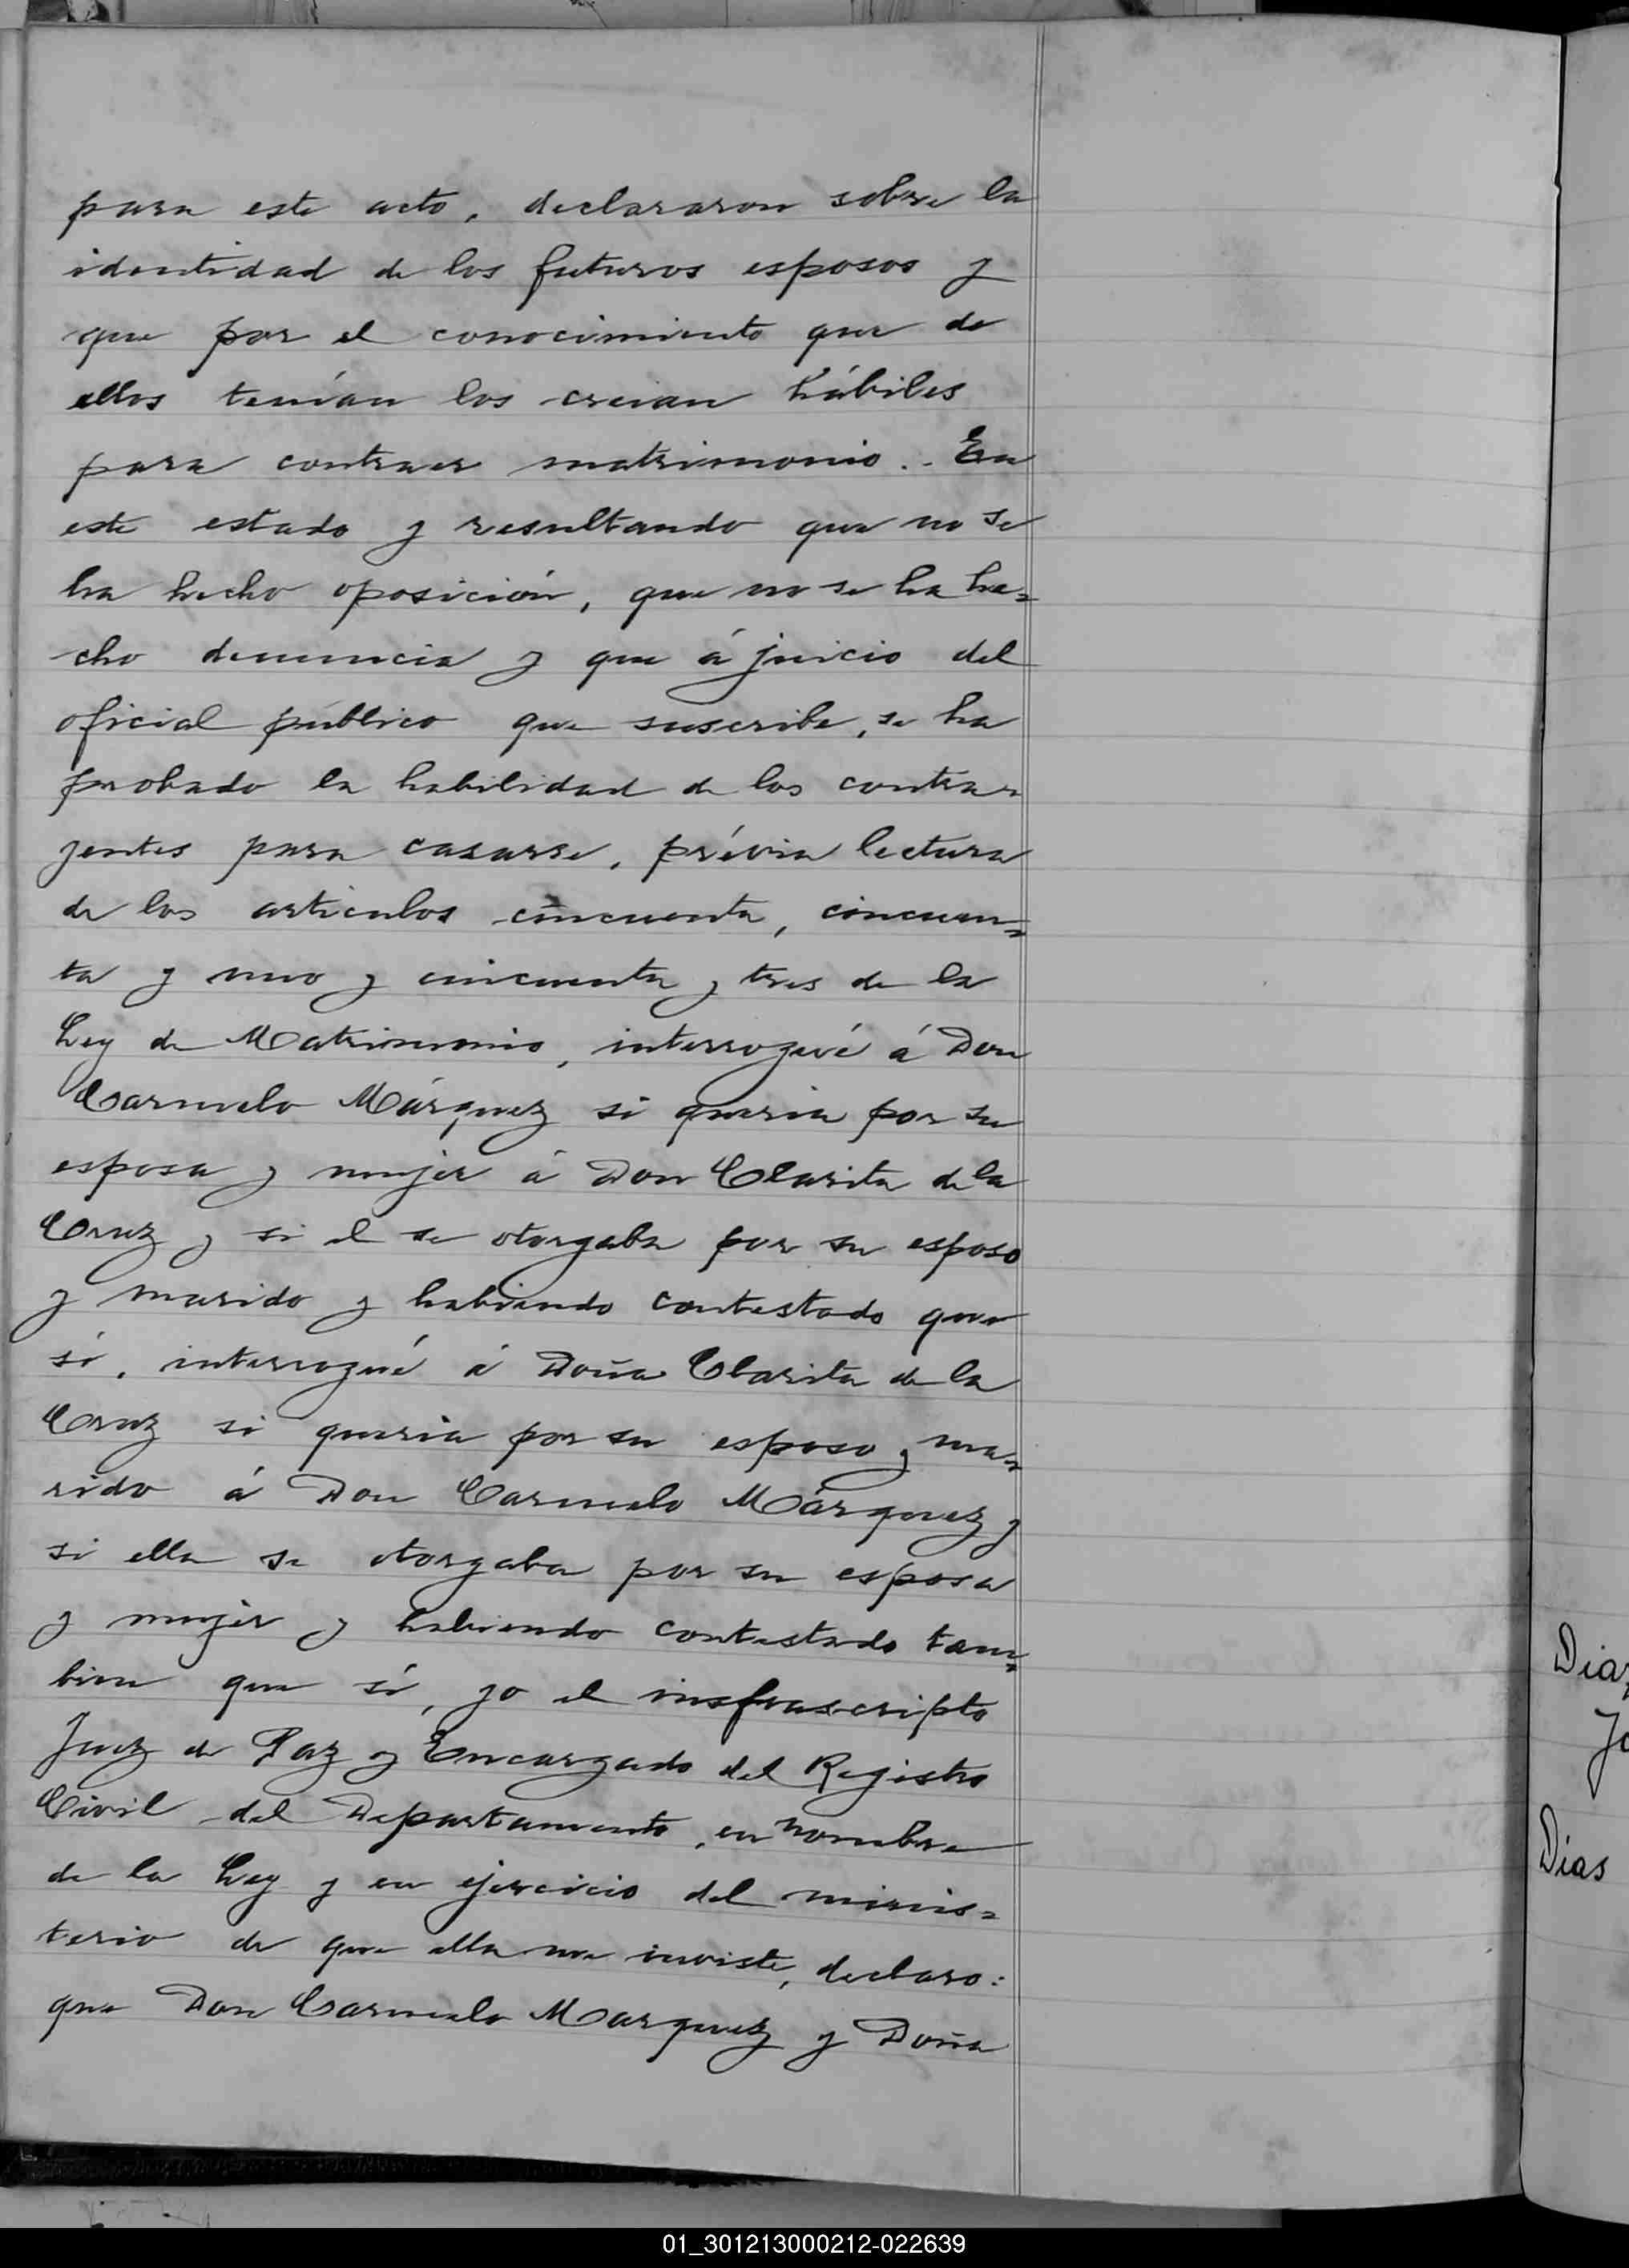 para este acto, declararon sobre la
identidad de los futuros esposos y
que por el conocimiento que de
ellos tenían los creian hábiles
para contraer matrimonio.. En
este estado y resultando que no se
ha hecho oposición, que no se ha he=
cho denuncia y que á juicio del
oficial público que suscribe, se ha
probado la habilidad de los contra=
yentes para casarse, prévia lectura
de los articulos cincuenta, cincuen=
ta y uno y cincuenta y tres de la
Ley de Matrimonio, interrogué á Don
Carmelo Márquez si queria por su
esposa y mujer á Don Clarita de la
Cruz y si el se otorgaba por su esposo
y marido y habiendo contestado que
sí, interrogué á Doña Clarita de la
Cruz si queria por su esposo y ma=
rido á Don Carmelo Márquez y
si ella se otorgaba por su esposa
y mujer y habiendo contestado tam=
bien que sí, yo el insfrascripto
Juez de Paz y Encargado del Registro
Civil del Departamento, en nombre
de la Ley y en ejercicio del minis=
terio de que ella me inviste, declaro:
que Don Carmelo Marquez y Doña
Dias
01_301213000212-022639